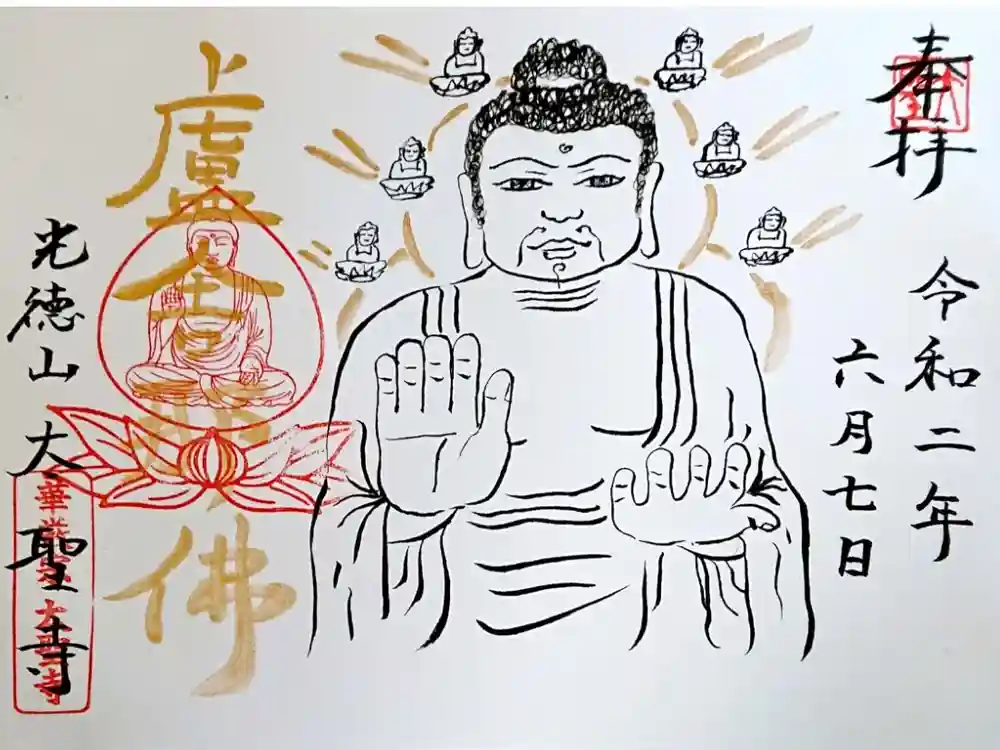 奉拝
令和二年
六月七日
盧舎那佛
光徳山 大聖寺
華厳宗 大聖寺